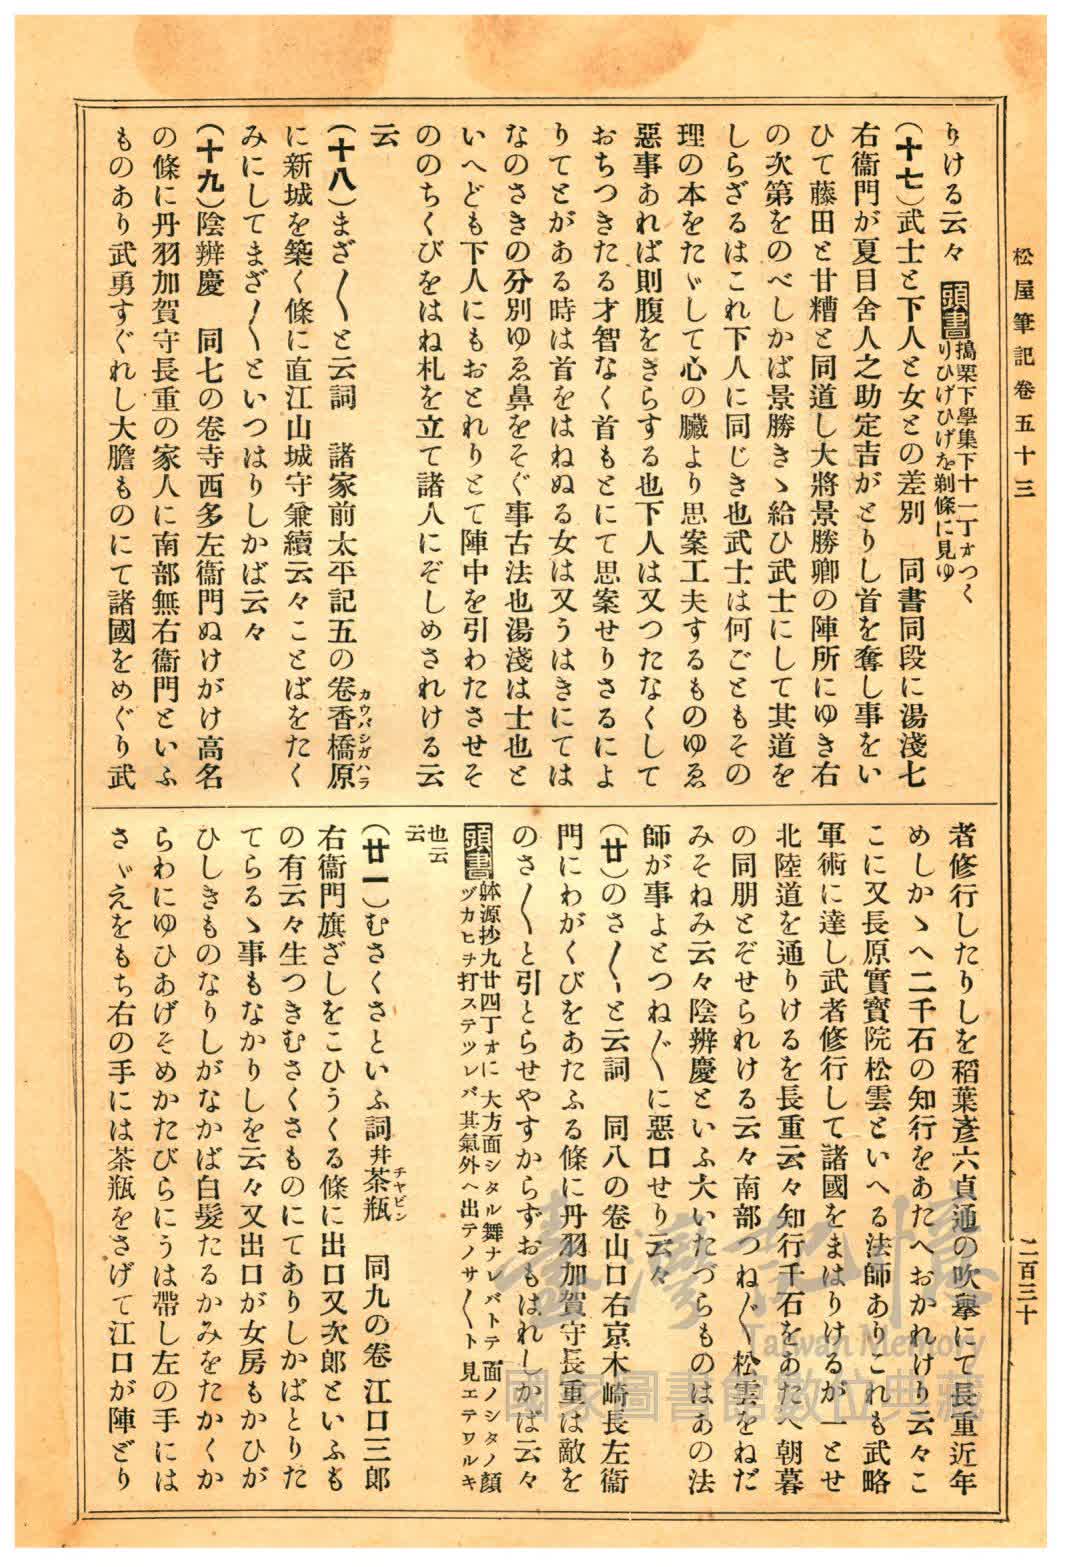 松屋筆記卷五十三
二百三十
りける云々 頭書 搗栗下學集下十一丁ォつく
りひげひげを剃條に見ゆ
(十七)武士と下人と女との差別 同書同段に湯淺七
右衞門が夏目舍人之助定吉がとりし首を奪し事をい
ひて藤田と甘糟と同道し大將景勝卿の陣所にゆき右
の次第をのべしかば景勝きゝ給ひ武士にして其道を
しらざるはこれ下人に同じき也武士は何ごともその
理の本をたゞして心の臟より思案工夫するものゆゑ
惡事あれば則腹をきらする也下人は又つたなくして
おちつきたる才智なく首もとにて思案せりさるによ
りてとがある時は首をはねぬる女は又うはきにては
なのさきの分別ゆゑ鼻をそぐ事古法也湯淺は士也と
いへども下人にもおとれりとて陣中を引わたさせそ
ののちくびをはね札を立て諸人にぞしめされける云
云
(十八)まざ〳〵と云詞 諸家前太平記五の卷香橋原
カウバシガハラ
に新城を築く條に直江山城守兼續云々ことばをたく
みにしてまざ〳〵といつはりしかば云々
(十九)陰辨慶 同七の卷寺西多左衞門ぬけがけ高名
の條に丹羽加賀守長重の家人に南部無右衞門といふ
ものあり武勇すぐれし大膽ものにて諸國をめぐり武
者修行したりしを稻葉彥六貞通の吹擧にて長重近年
めしかゝへ二千石の知行をあたへおかれけり云々こ
こに又長原實寳院松雲といへる法師ありこれも武略
軍術に達し武者修行して諸國をまはりけるが一とせ
北陸道を通りけるを長重云々知行千石をあたへ朝暮
の同朋とぞせられける云々南部つね〴〵松雲をねだ
みそねみ云々陰辨慶といふ大いたづらものはあの法
師が事よとつね〴〵に惡口せり云々
(廿)のさ〳〵と云詞 同八の卷山口右京木崎長左衞
門にわがくびをあたふる條に丹羽加賀守長重は敵を
のさ〳〵と引とらせやすからずおもはれしかば云々
頭書 躰源抄九廿四丁ォに大方面シタル舞ナレバトテ面ノシタノ顏
ヅカヒヲ打ステツレバ其氣外ヘ出テノサ〳〵ト見エテワルキ
也云
云
(廿一)むさくさといふ詞幷茶瓶 同九の卷江口三郎
チヤビン
右衞門旗ざしをこひうくる條に出口又次郎といふも
の有云々生つきむさくさものにてありしかばとりた
てらるゝ事もなかりしを云々又出口が女房もかひが
ひしきものなりしがなかば白髮たるかみをたかくか
らわにゆひあげそめかたびらにうは帶し左の手には
さゞえをもち右の手には茶瓶をさげて江口が陣どり
臺灣記憶
Taiwan Memory
國家圖書館數位典藏